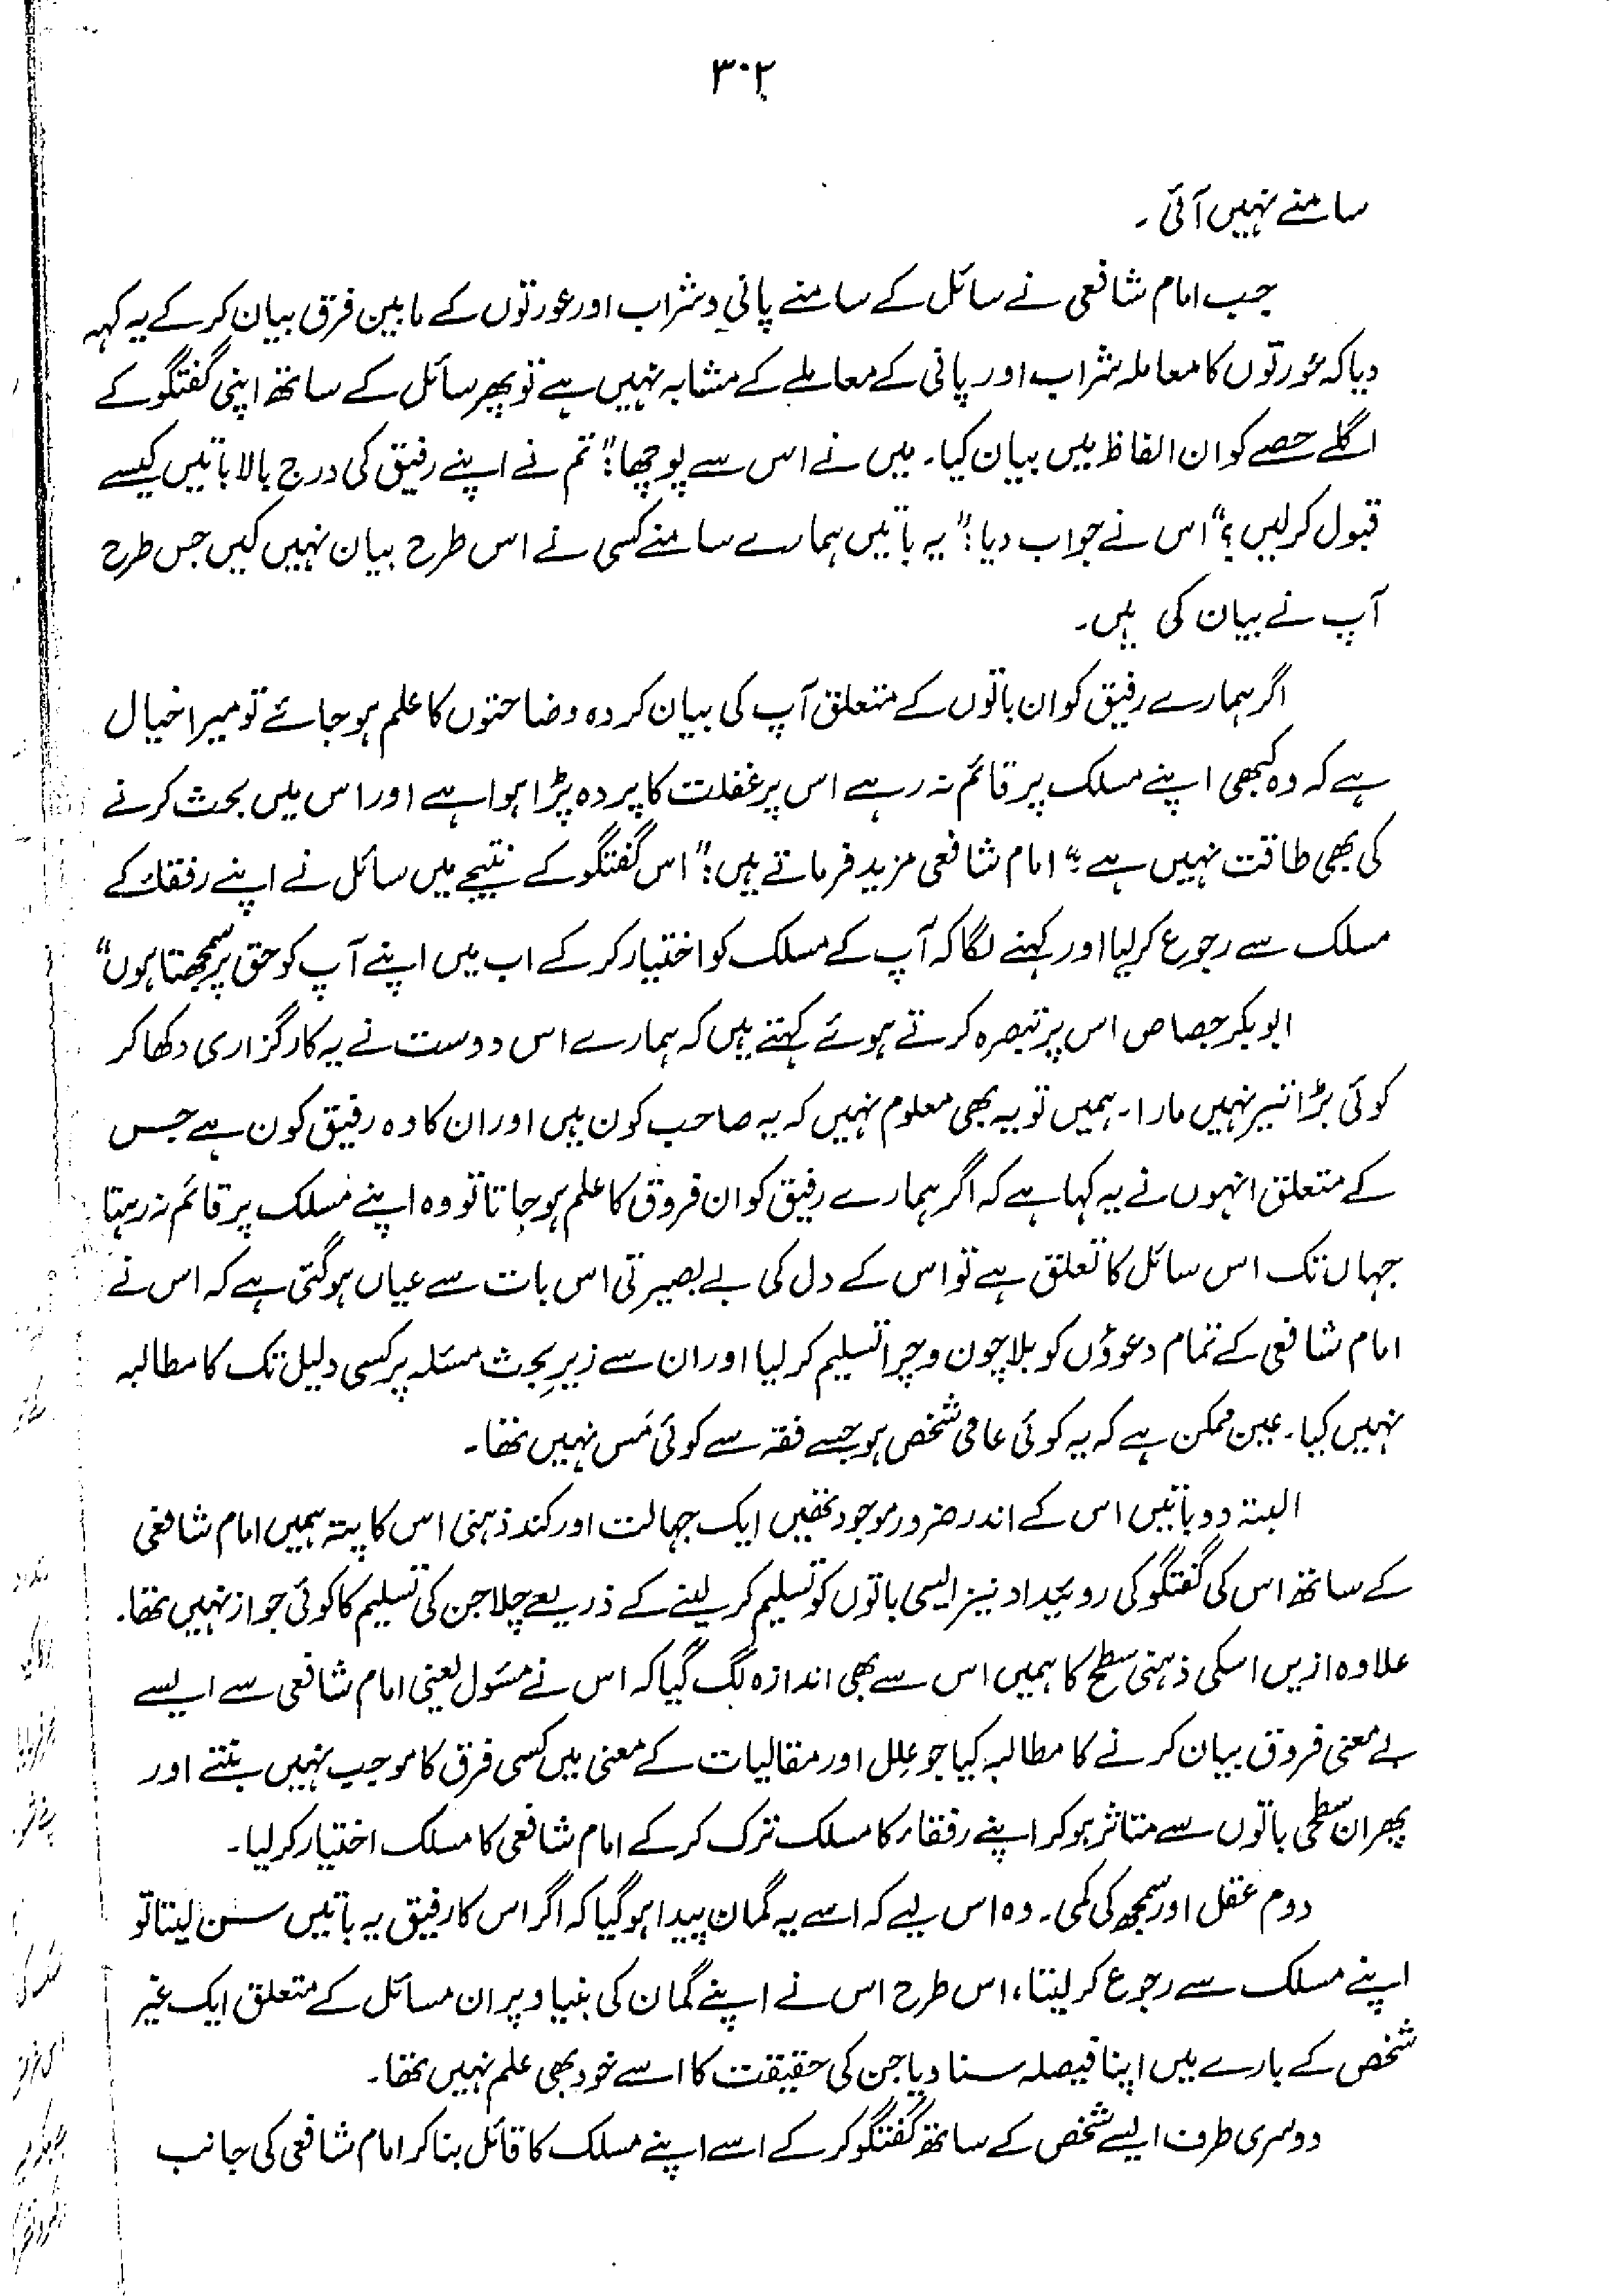 ۳۰۲
سامنے نہیں آئی۔
جب امام شافعی نے سائل کے سامنے پانی و شراب اور عورتوں کے مابین فرق بیان کر کے یہ کہہ
دیا کہ عورتوں کا معاملہ شراب اور پانی کے معاملے کے مشابہ نہیں ہے تو پھر سائل کے ساتھ اپنی گفتگو کے
اگلے حصے کو ان الفاظ میں بیان کیا۔ میں نے اس سے پوچھا: "تم نے اپنے رفیق کی درج بالا باتیں کیسے
قبول کر لیں؟" اس نے جواب دیا: "یہ باتیں ہمارے سامنے کسی نے اس طرح بیان نہیں کیں جس طرح
آپ نے بیان کی ہیں۔
اگر ہمارے رفیق کو ان باتوں کے متعلق آپ کی بیان کردہ وضاحتوں کا علم ہو جائے تو میرا خیال
ہے کہ وہ کبھی اپنے مسلک پر قائم نہ رہے اس پر غفلت کا پردہ پڑا ہوا ہے اور اس میں بحث کرنے
کی بھی طاقت نہیں ہے" امام شافعی مزید فرماتے ہیں: "اس گفتگو کے نتیجے میں سائل نے اپنے رفقاء کے
مسلک سے رجوع کر لیا اور کہنے لگا کہ آپ کے مسلک کو اختیار کر کے اب میں اپنے آپ کو حق پر سمجھتا ہوں"
ابوبکر جصاص اس پر تبصرہ کرتے ہوئے کہتے ہیں کہ ہمارے اس دوست نے یہ کارگزاری دکھا کر
کوئی بڑا تیر نہیں مارا۔ ہمیں تو یہ بھی معلوم نہیں کہ یہ صاحب کون ہیں اور ان کا وہ رفیق کون ہے جس
کے متعلق انہوں نے یہ کہا ہے کہ اگر ہمارے رفیق کو ان فروق کا علم ہو جاتا تو وہ اپنے مسلک پر قائم نہ رہتا
جہاں تک اس سائل کا تعلق ہے تو اس کے دل کی بے بصیرتی اس بات سے عیاں ہو گئی ہے کہ اس نے
امام شافعی کے تمام دعوؤں کو بلا چون و چرا تسلیم کر لیا اور ان سے زیرِ بحث مسئلہ پر کسی دلیل تک کا مطالبہ
نہیں کیا۔ عین ممکن ہے کہ یہ کوئی عامی شخص ہو جسے فقہ سے کوئی مَس نہیں تھا۔
البتہ دو باتیں اس کے اندر ضرور موجود تھیں ایک جہالت اور کند ذہنی اس کا پتہ ہمیں امام شافعی
کے ساتھ اس کی گفتگو کی روئیداد نیز ایسی باتوں کو تسلیم کر لینے کے ذریعے چلا جن کی تسلیم کا کوئی جواز نہیں تھا۔
علاوہ ازیں اسکی ذہنی سطح کا ہمیں اس سے بھی اندازہ لگ گیا کہ اس نے مسئول یعنی امام شافعی سے ایسے
بے معنی فروق بیان کرنے کا مطالبہ کیا جو علل اور مقالیات کے معنی میں کسی فرق کا موجب نہیں بنتے اور
پھر ان سطحی باتوں سے متاثر ہو کر اپنے رفقاء کا مسلک ترک کر کے امام شافعی کا مسلک اختیار کر لیا۔
دوم عقل اور سمجھ کی کمی۔ وہ اس لیے کہ اسے یہ گمان پیدا ہو گیا کہ اگر اس کا رفیق یہ باتیں سن لیتا تو
اپنے مسلک سے رجوع کر لیتا، اس طرح اس نے اپنے گمان کی بنیاد پر ان مسائل کے متعلق ایک غیر
شخص کے بارے میں اپنا فیصلہ سنا دیا جن کی حقیقت کا اسے خود بھی علم نہیں تھا۔
دوسری طرف ایسے شخص کے ساتھ گفتگو کر کے اسے اپنے مسلک کا قائل بنا کر امام شافعی کی جانب